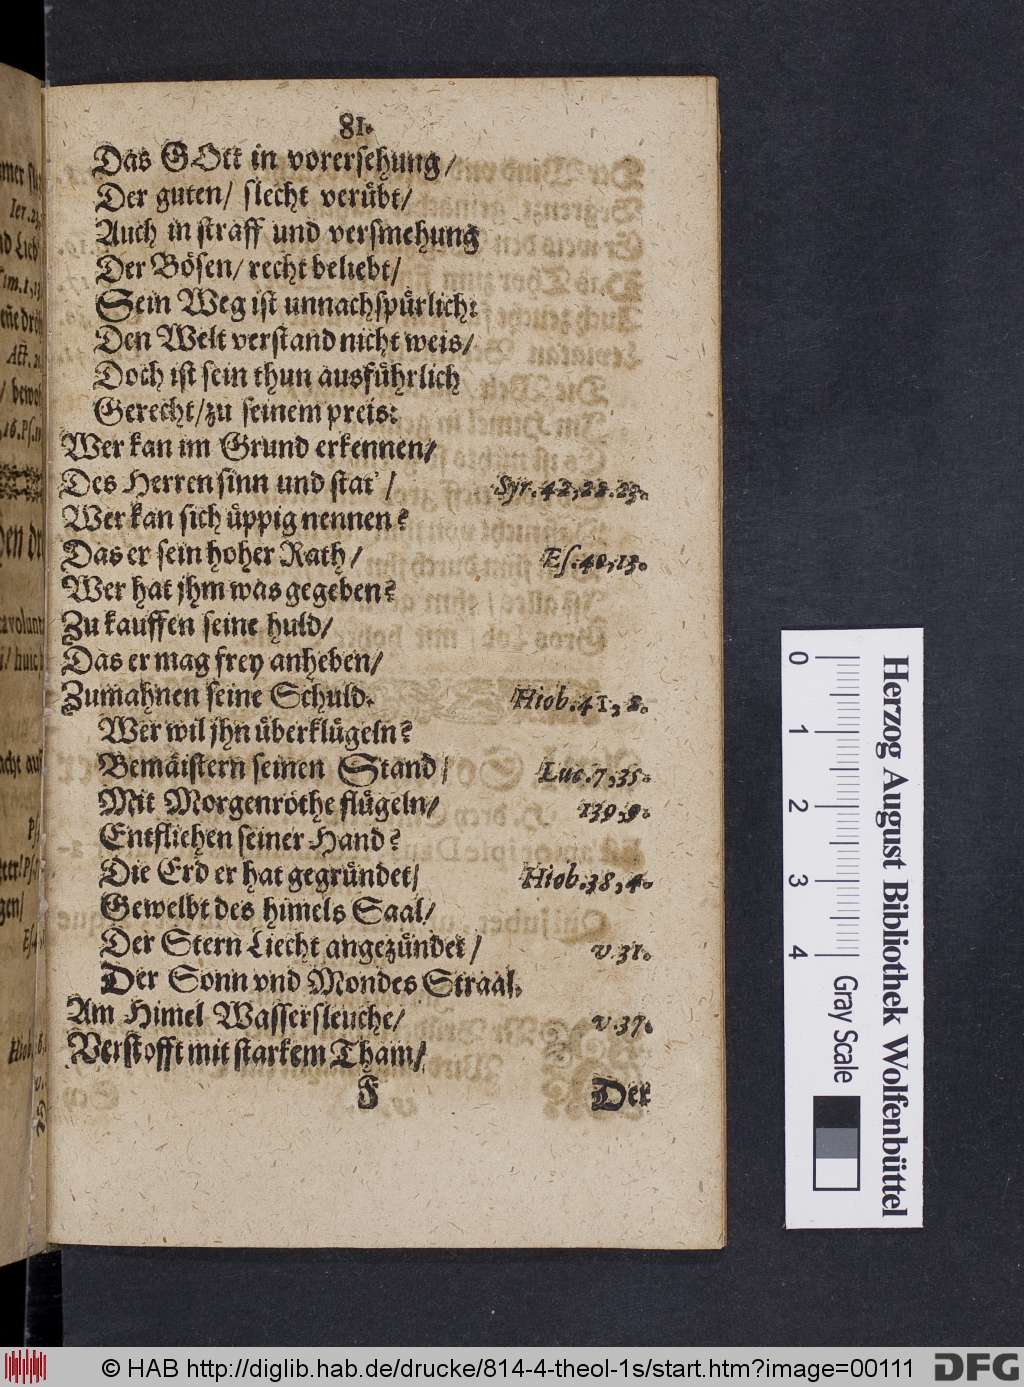 81.
Das GOtt in vorersehung/
Der guten/ slecht verübt/
Auch in straff und versmehung
Der Bösen/ recht beliebt/
Sein Weg ist unnachspürlich:
Den Welt verstand nicht weis/
Doch ist sein thun ausführlich
Gerecht/zu seinem preis:
Wer kan im Grund erkennen/
Des Herren sinn und stat'/ Syr. 42,22.23.
Wer kan sich üppig nennen?
Das er sein hoher Rath/ Es. 40,13.
Wer hat jhm was gegeben?
Zu kauffen seine huld/
Das er mag frey anheben/
Zumahnen seine Schuld. Hiob. 41, 2.
Wer wil jhn überklügeln?
Bemäistern seinen Stand/ Luc. 7,35.
Mit Morgenröthe flügeln/ 139,9.
Entfliehen seiner Hand?
Die Erd er hat gegründet/ Hiob. 38,4.
Gewelbt des himels Saal/
Der Stern Liecht angezündet/ v. 31.
Der Sonn vnd Mondes Straal.
Am Himel Wassersleuche/ v. 37.
Verstofft mit starkem Tham/
F Der
Herzog August Bibliothek Wolfenbüttel
0 1 2 3 4
Gray Scale
© HAB http://diglib.hab.de/drucke/814-4-theol-1s/start.htm?image=00111
DFG